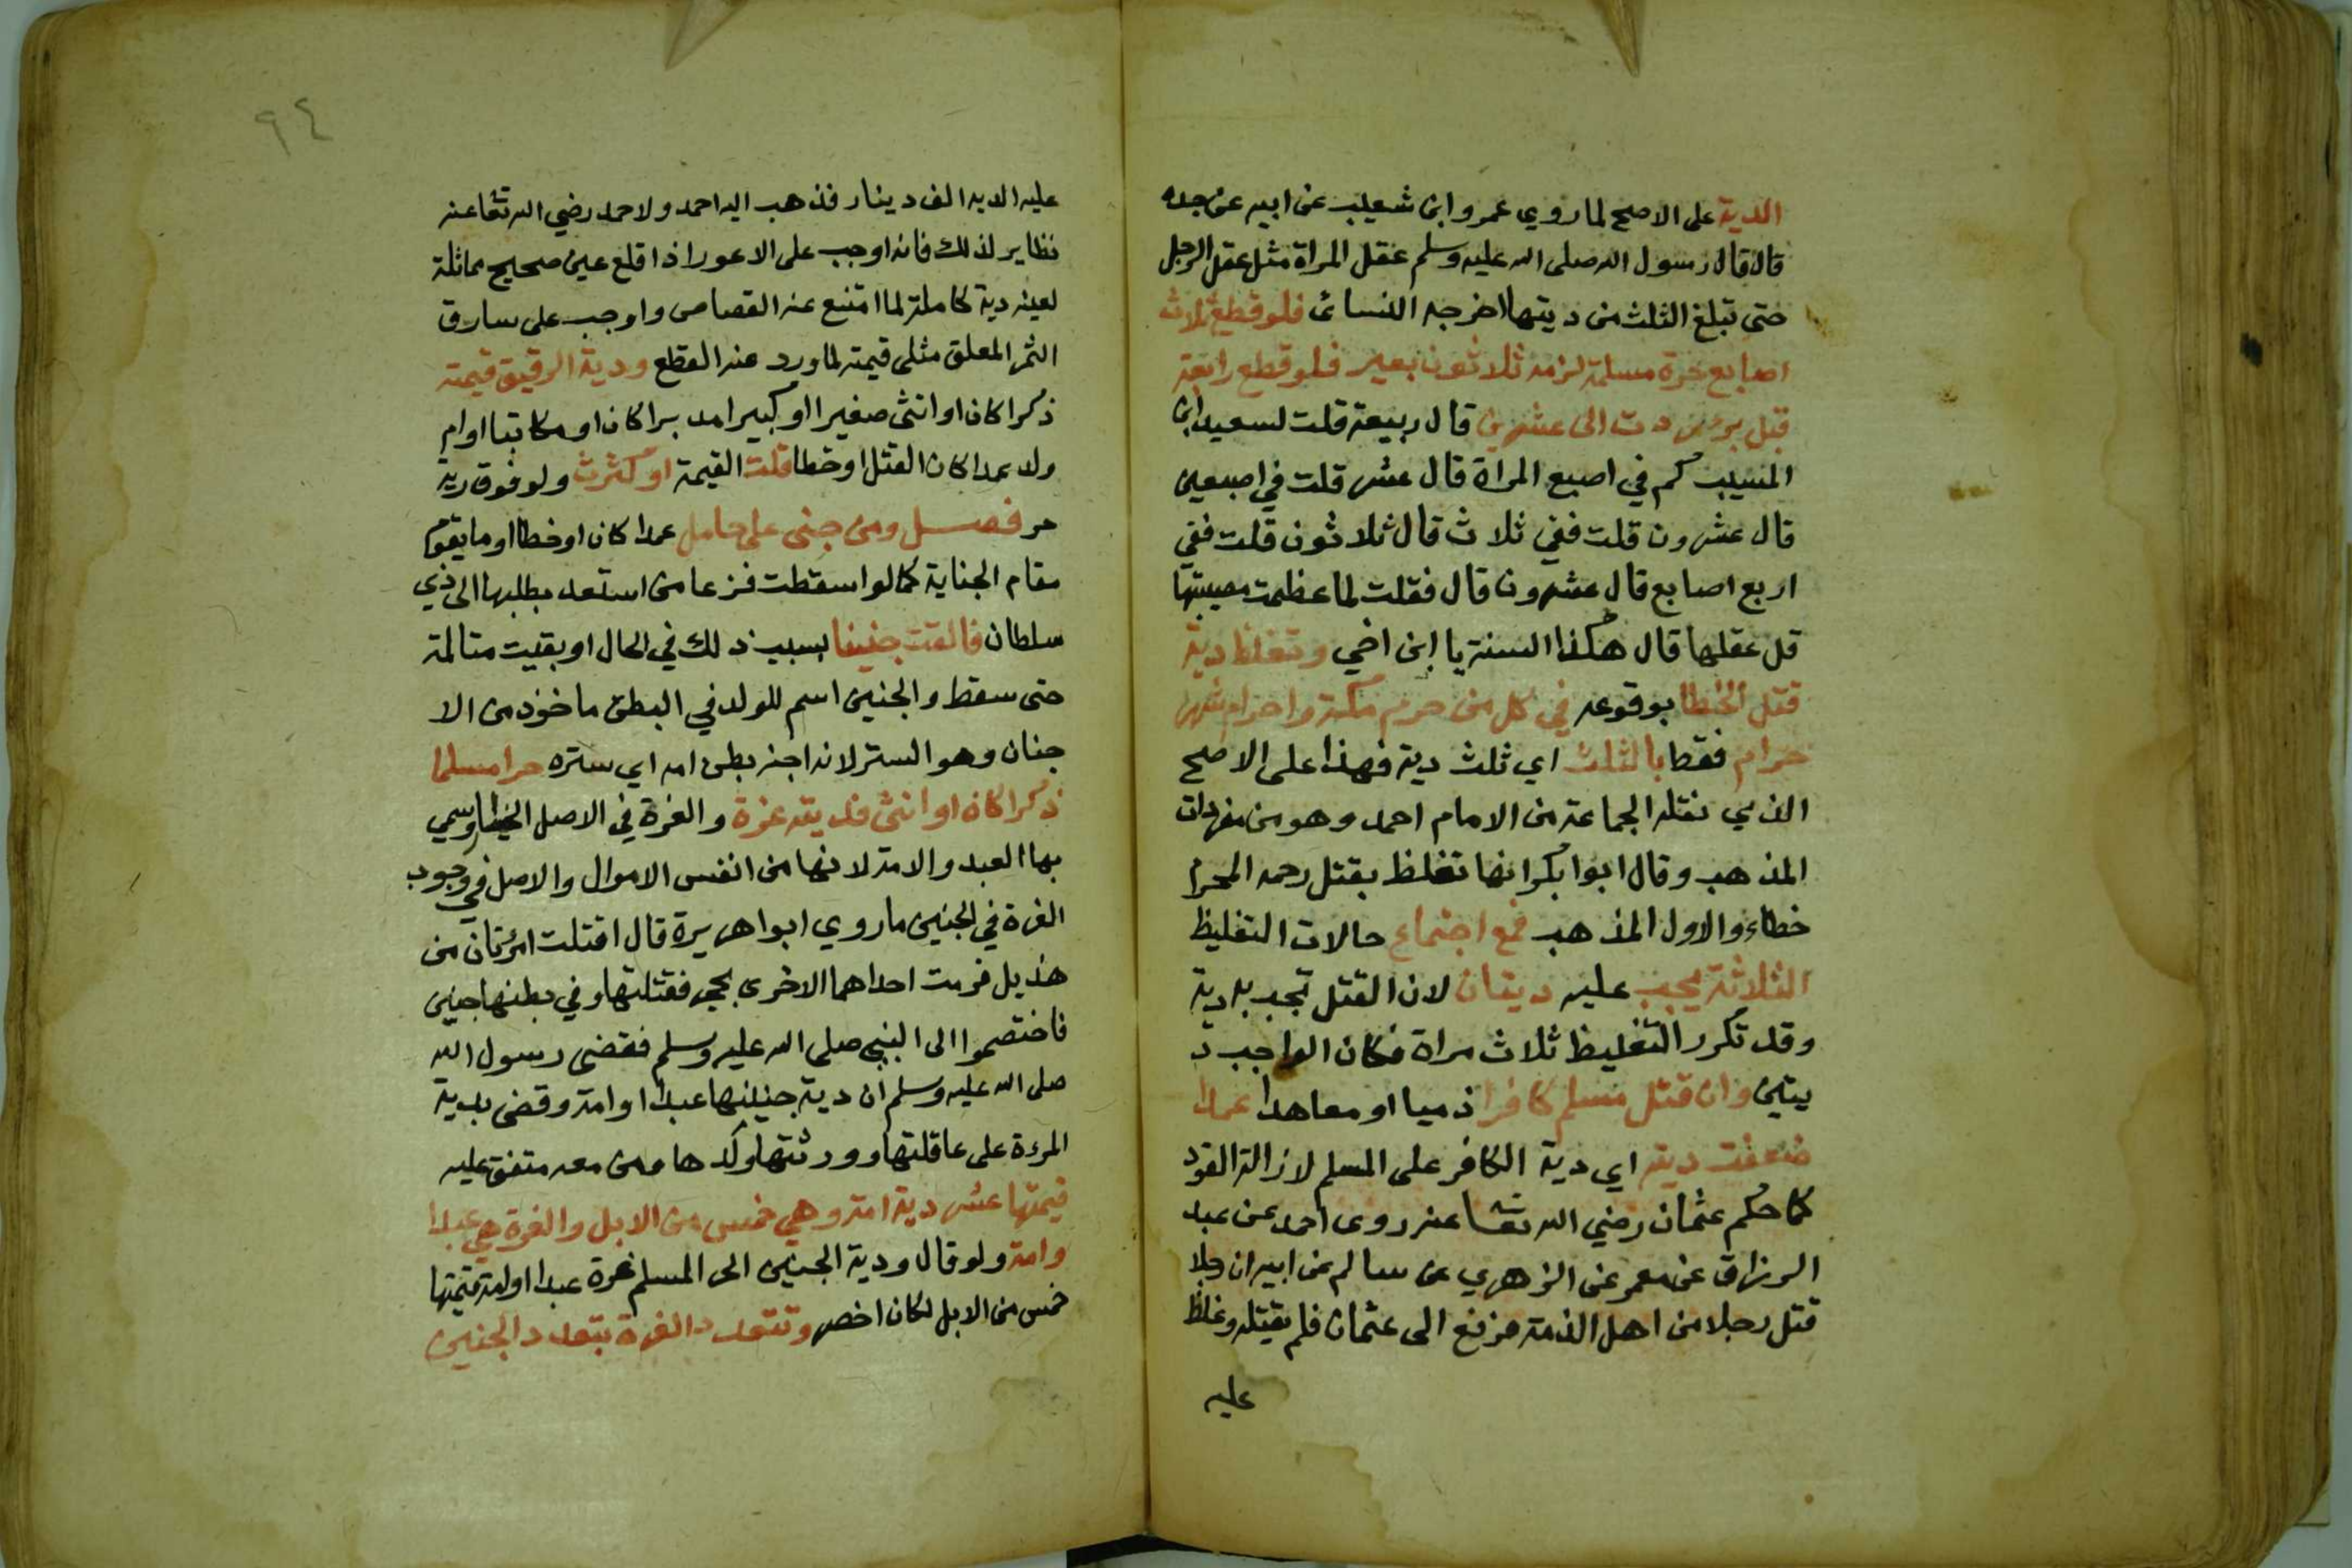 الدية على الاصح لما روي عمرو ابن شعيب عن ابيه عن جده
قال قال رسول الله صلى الله عليه وسلم عقل المراة مثل عقل الرجل
حتى تبلغ الثلث من ديتها اخرجه النسائ فلو قطع ثلاث
اصابع حرة مسلمة لزمه ثلاثون بعير فلو قطع رابعة
قبل برء ردت الى عشرين قال ربيعة قلت لسعيد ابن
المسيب كم في اصبع المراة قال عشر قلت في اصبعين
قال عشرون قلت ففي ثلاث قال ثلاثون قلت ففي
اربع اصابع قال عشرون قال فقلت لما عظمت مصيبتها
قل عقلها قال هكذا السنة يا ابن اخي وتغلظ دية
قتل الخطا بوقوعه في كل من حرم مكة واحرام وشهر
حرام فقط بالثلث اي ثلث دية فهذا على الاصح
الذي نقله الجماعة من الامام احمد وهو من مفردات
المذهب وقال ابوا بكر انها تغلظ بقتل رحمه المحرم
خطاء والاول المذهب فمع اجتماع حالات التغليظ
الثلاثة يجب عليه ديتان لان القتل تجب به دية
وقد تكرر التغليظ ثلاث مراة فكان الواجب د
يتين وان قتل مسلم كافرا ذميا او معاهدا عمدا
ضعفت ديته اي دية الكافر على المسلم لازالة القود
كما حكم عثمان رضي الله تعا عنه روى احمد عن عبد
الرزاق عن معمر عن الزهري عن سالم عن ابيه ان رجلا
قتل رجلا من اهل الذمة فرفع الى عثمان فلم يقتله وغلظ
عليه
٩٤
عليه الديه الف دينار فذهب اليه احمد ولاحمد رضي الله تعا عنه
نظاير لذلك فانه اوجب على الاعور اذا قلع عين صحيح مماثلة
لعينه دية كاملة لما امتنع عنه القصاص واوجب على سارق
الثمر المعلق مثلي قيمته لما ورد عنه القطع ودية الرقيق قيمته
ذكرا كان او انثى صغيرا او كبيرا مدبرا كان او مكاتبا او ام
ولد عمدا كان القتل او خطا قلت القيمة او كثرت ولو فوق دية
حر فصل ومن جنى على حامل عمدا كان او خطا او ما يقوم
مقام الجناية كما لو اسقطت فزعا من استعد بطلبها الى ذي
سلطان فالقت جنينا بسبب ذلك في الحال او بقيت متالمة
حتى سقط والجنين اسم للولد في البطن ماخوذ من الا
جنان وهو الستر لانه اجنه بطن امه اي ستره حرا مسلما
ذكرا كان او انثى فديته غرة والغرة في الاصل الخيار وسمي
بها العبد والامة لانها من انفس الاموال والاصل في وجوب
الغرة في الجنين ما روي ابوا هريرة قال اقتلت امرئتان من
هذيل فرمت احداهما الاخرى بحجر فقتلتها وفي بطنها جنين
فاختصموا الى النبي صلى الله عليه وسلم فقضى رسول الله
صلى الله عليه وسلم ان دية جنينها عبدا او امة وقضى بدية
المرءة على عاقلتها وورثتها ولدها ومن معه متفق عليه
قيمتها عشر دية امه وهي خمس من الابل والغرة هي عبدا
وامة ولو قال ودية الجنين الحر المسلم غرة عبدا او امة قيمتها
خمس من الابل لكان اخصر وتتعدد الغرة بتعدد الجنين